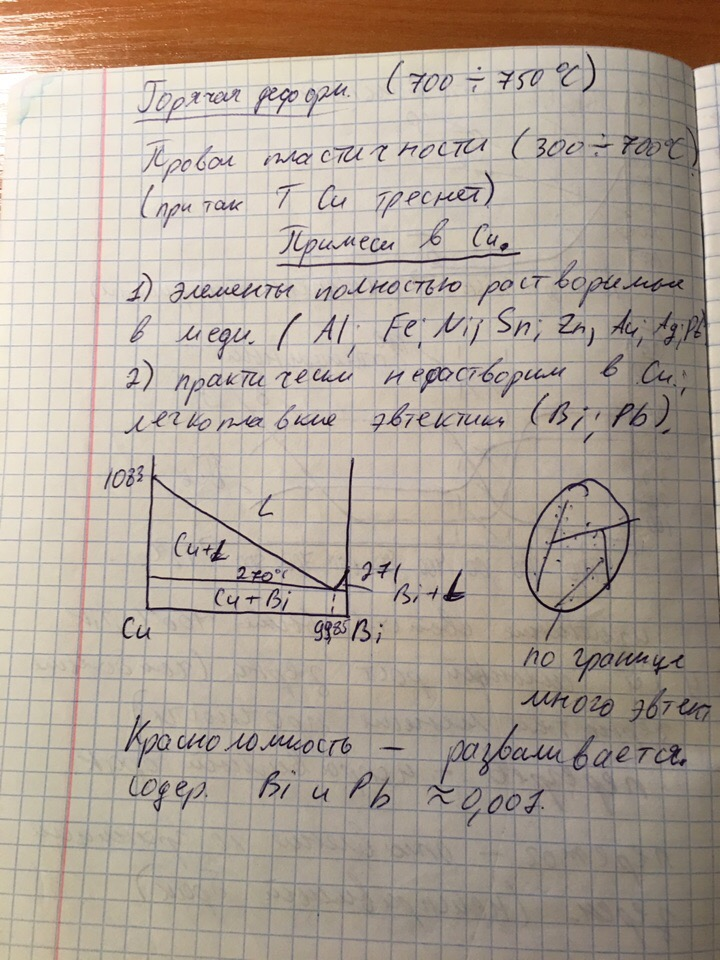 Горячая деформ. (700 ÷ 750 °C)
Провал пластичности (300 ÷ 700°C)
(при так T Cu треснет)
Примеси в Cu.
1) элементы полностью растворимые
в меди. (Al; Fe; Ni; Sn; Zn, Au; Ag; Pb
2) практически нерастворим в Cu;
легкоплавкие эвтектики (Bi; Pb),
1083
L
Cu+L
270°C
271
Cu + Bi
Bi + L
Cu
99,85
Bi
по границе
много эвтект
Красноломкость — разваливается.
Содер. Bi и Pb ≈ 0,001.